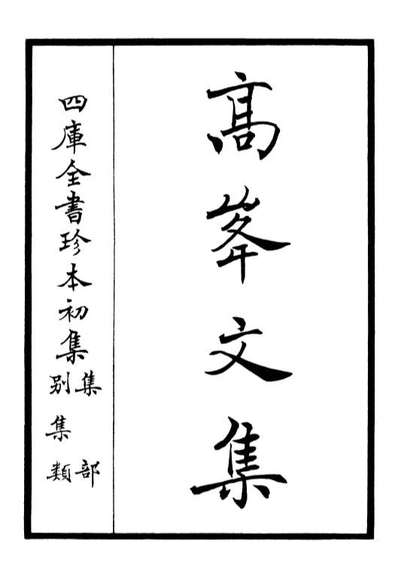 高峯文集
四庫全書珍本初集
集部
別集類